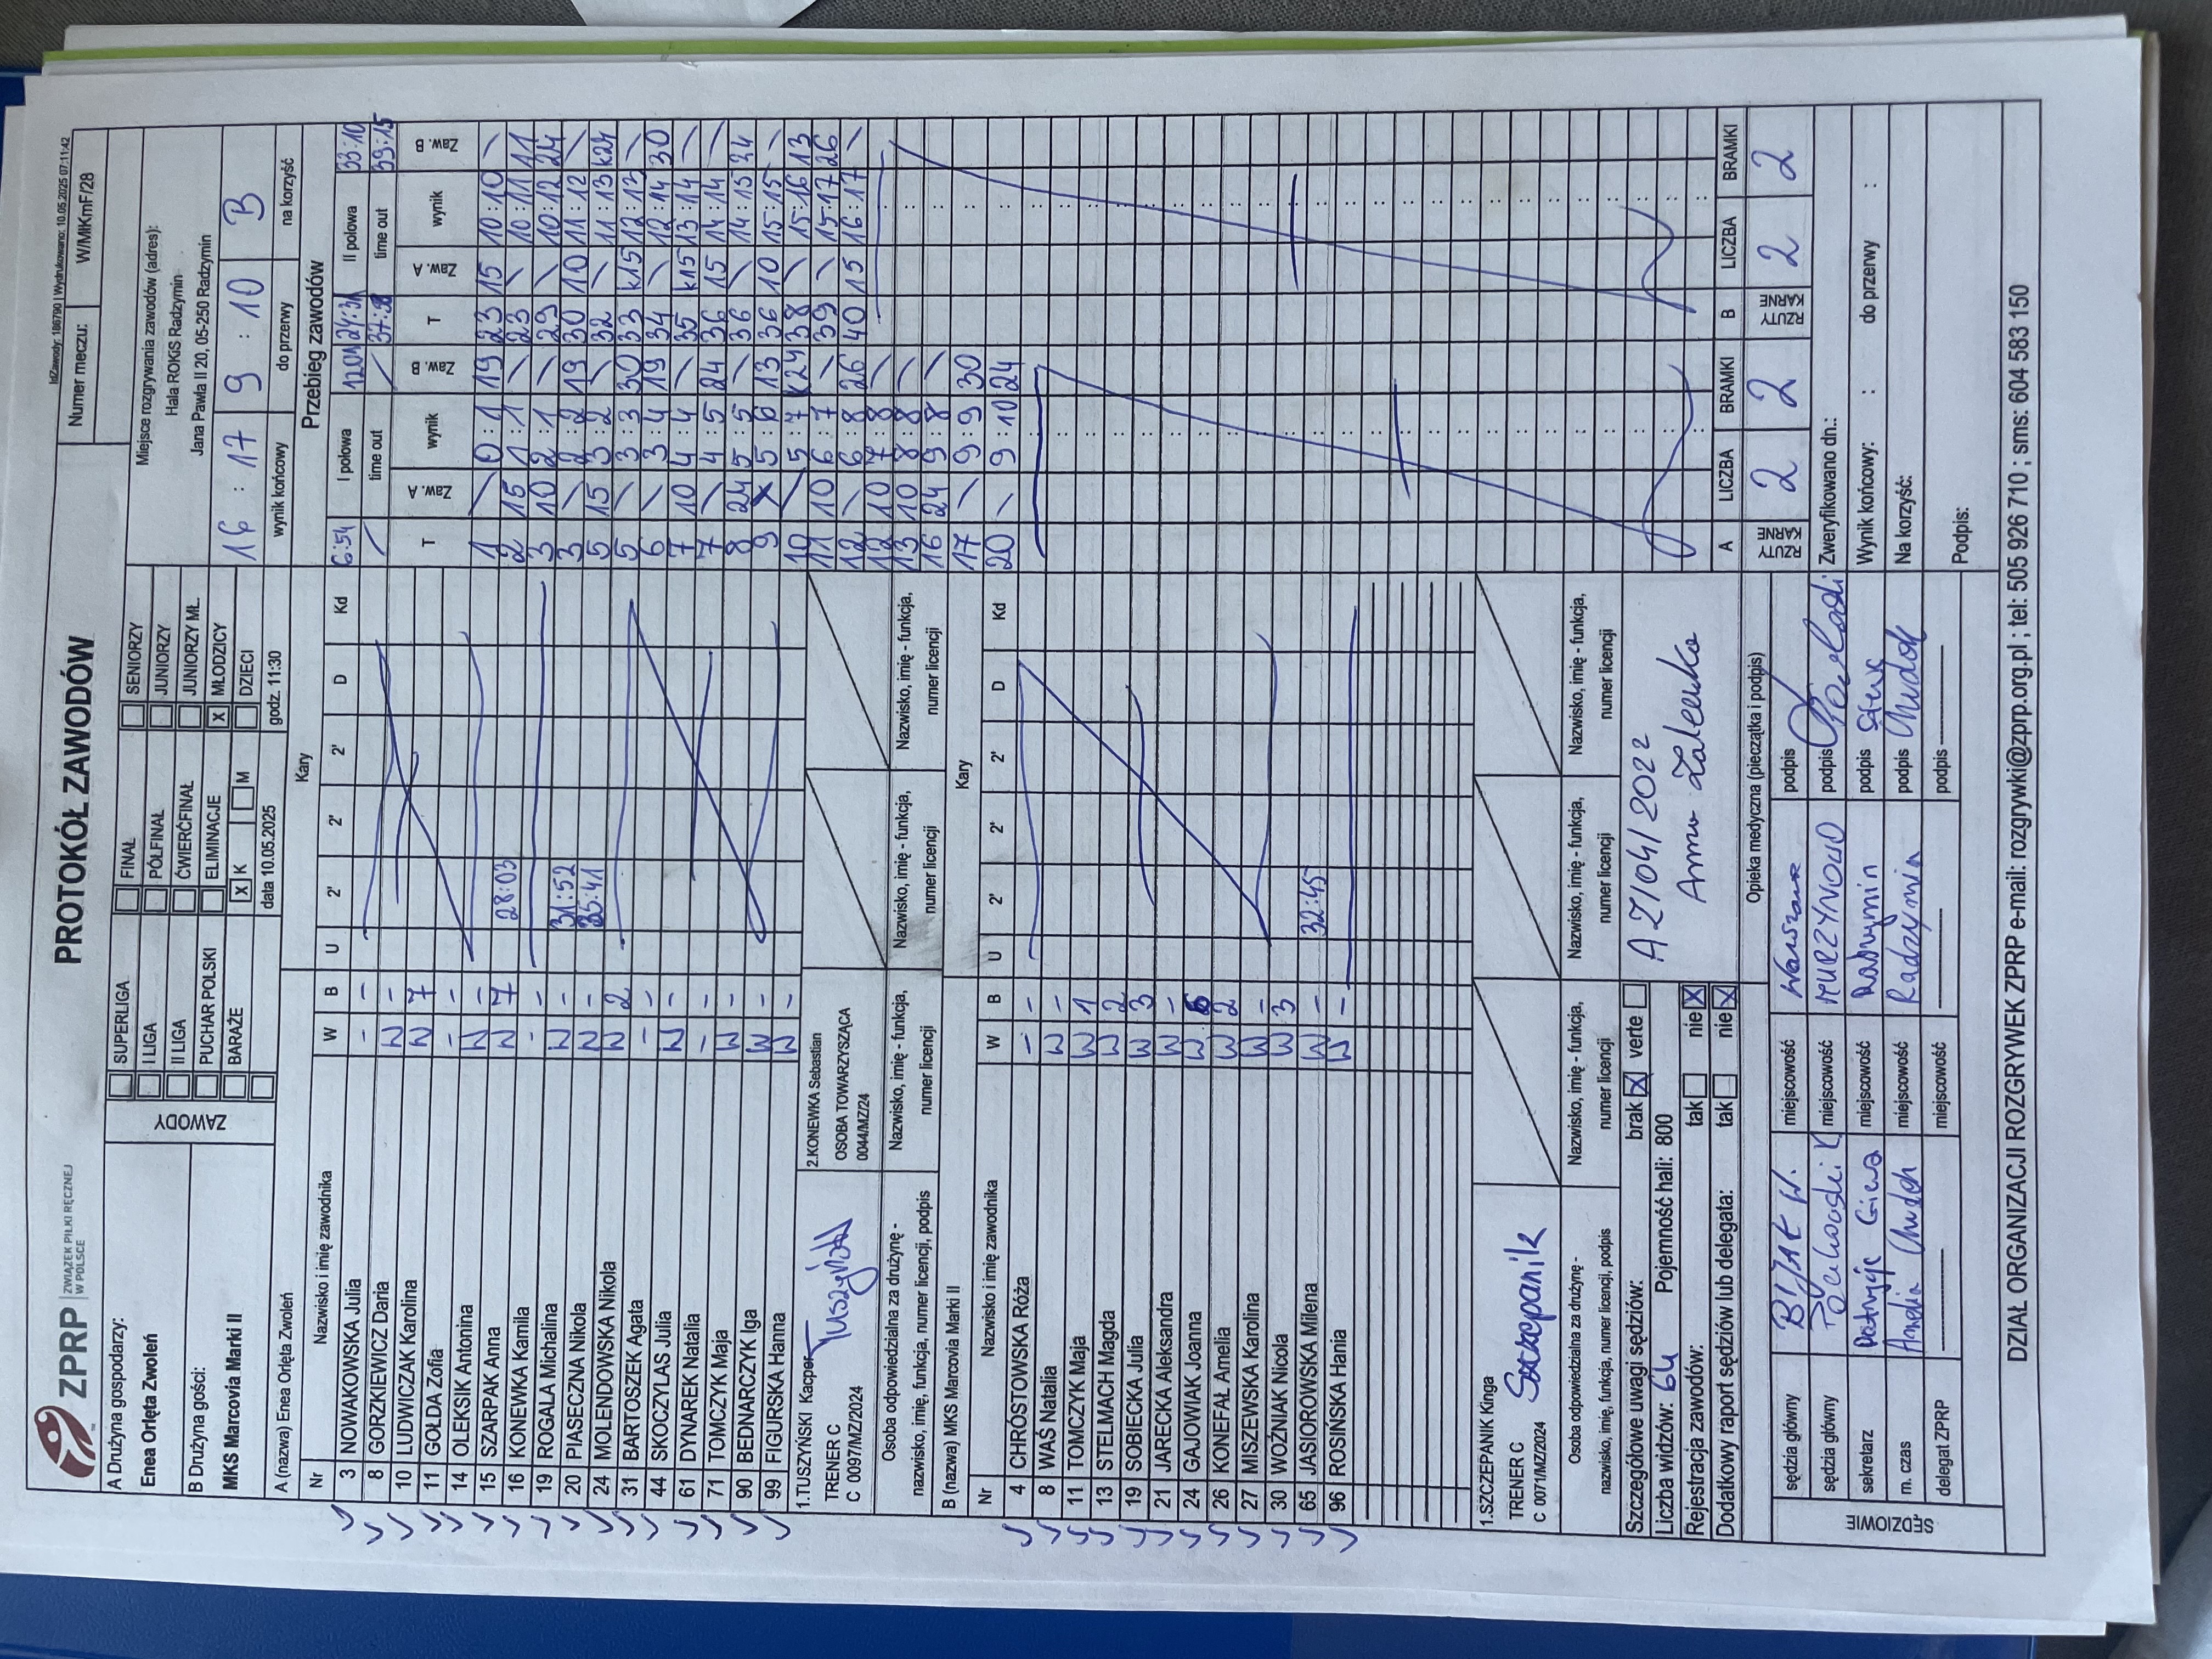 IdZawody: 186790 | Wydrukowano: 10.05.2025 07:11:42
ZPRP ZWIĄZEK PIŁKI RĘCZNEJ W POLSCE
PROTOKÓŁ ZAWODÓW
Numer meczu: W/MłKmF/28
A Drużyna gospodarzy:
Enea Orlęta Zwoleń
B Drużyna gości:
MKS Marcovia Marki II
ZAWODY
SUPERLIGA
I LIGA
II LIGA
PUCHAR POLSKI
BARAŻE
FINAŁ
PÓŁFINAŁ
ĆWIERĆFINAŁ
ELIMINACJE
X K M
SENIORZY
JUNIORZY
JUNIORZY MŁ.
X MŁODZICY
DZIECI
data 10.05.2025 godz. 11:30
Miejsce rozgrywania zawodów (adres):
Hala ROKiS Radzymin
Jana Pawła II 20, 05-250 Radzymin
16 : 17 9 : 10 B
wynik końcowy do przerwy na korzyść
A (nazwa) Enea Orlęta Zwoleń Kary
Nr Nazwisko i imię zawodnika W B U 2' 2' 2' D Kd
3 NOWAKOWSKA Julia - -
8 GORZKIEWICZ Daria W -
10 LUDWICZAK Karolina W 7
11 GOŁDA Zofia - -
14 OLEKSIK Antonina W -
15 SZARPAK Anna W 7 28:03
16 KONEWKA Kamila - -
19 ROGALA Michalina W -
20 PIASECZNA Nikola W - 31:52
24 MOLENDOWSKA Nikola W 2 35:41
31 BARTOSZEK Agata - -
44 SKOCZYLAS Julia W -
61 DYNAREK Natalia - -
71 TOMCZYK Maja W -
90 BEDNARCZYK Iga W -
99 FIGURSKA Hanna W -
1.TUSZYŃSKI Kacper
TRENER C
C 0097/MZ/2024
Tuszyński
2.KONEWKA Sebastian
OSOBA TOWARZYSZĄCA
0044/MZ/24
Osoba odpowiedzialna za drużynę -
nazwisko, imię, funkcja, numer licencji, podpis
Nazwisko, imię - funkcja,
numer licencji
Nazwisko, imię - funkcja,
numer licencji
Nazwisko, imię - funkcja,
numer licencji
Nazwisko, imię - funkcja,
numer licencji
B (nazwa) MKS Marcovia Marki II Kary
Nr Nazwisko i imię zawodnika W B U 2' 2' 2' D Kd
4 CHRÓSTOWSKA Róża - -
8 WAŚ Natalia W -
11 TOMCZYK Maja W 1
13 STELMACH Magda W 2
19 SOBIECKA Julia W 3
21 JARECKA Aleksandra W -
24 GAJOWIAK Joanna W 6
26 KONEFAŁ Amelia W 2
27 MISZEWSKA Karolina W -
30 WOŹNIAK Nicola W 3
65 JASIOROWSKA Milena W - 32:45
96 ROSIŃSKA Hania W -
1.SZCZEPANIK Kinga
TRENER C
C 0071/MZ/2024
Szczepanik
Osoba odpowiedzialna za drużynę -
nazwisko, imię, funkcja, numer licencji, podpis
Nazwisko, imię - funkcja,
numer licencji
Nazwisko, imię - funkcja,
numer licencji
Nazwisko, imię - funkcja,
numer licencji
Nazwisko, imię - funkcja,
numer licencji
Szczegółowe uwagi sędziów: brak X verte
Liczba widzów: 64 Pojemność hali: 800
Rejestracja zawodów: tak nie X
Dodatkowy raport sędziów lub delegata: tak nie X
AZ/04/2022
Anna Zalewska
Opieka medyczna (pieczątka i podpis)
Przebieg zawodów
I połowa 6:54 12:01
time out / /
II połowa 24:31 33:10
time out 37:58 39:15
T Zaw. A wynik Zaw. B T Zaw. A wynik Zaw. B
1 \ 0 : 1 19 23 15 10 : 10 \
2 15 1 : 1 \ 23 \ 10 : 11 11
3 10 2 : 1 \ 29 \ 10 : 12 24
3 \ 2 : 2 19 30 10 11 : 12 \
5 15 3 : 2 \ 32 \ 11 : 13 K24
5 \ 3 : 3 30 33 K15 12 : 13 \
6 \ 3 : 4 19 34 \ 12 : 14 30
7 10 4 : 4 \ 35 K15 13 : 14 \
7 \ 4 : 5 24 36 15 14 : 14 \
8 24 5 : 5 \ 36 \ 14 : 15 24
9 X 5 : 6 13 36 10 15 : 15 \
10 \ 5 : 7 K24 38 \ 15 : 16 13
11 10 6 : 7 \ 39 \ 15 : 17 26
12 \ 6 : 8 26 40 15 16 : 17 \
12 10 7 : 8 \
13 10 8 : 8 \
16 24 9 : 8 \
17 \ 9 : 9 30
20 \ 9 : 10 24
A LICZBA BRAMKI B LICZBA BRAMKI
RZUTY KARNE 2 2 RZUTY KARNE 2 2
Zweryfikowano dn.:
Wynik końcowy: : do przerwy :
Na korzyść:
Podpis:
SĘDZIOWIE
sędzia główny BIJAK W. miejscowość Warszawa podpis
sędzia główny miejscowość podpis
sekretarz Patrycja miejscowość Radzymin podpis
m. czas Amelia Chudek miejscowość Radzymin podpis Chudek
delegat ZPRP miejscowość podpis
DZIAŁ ORGANIZACJI ROZGRYWEK ZPRP e-mail: rozgrywki@zprp.org.pl ; tel: 505 926 710 ; sms: 604 583 150